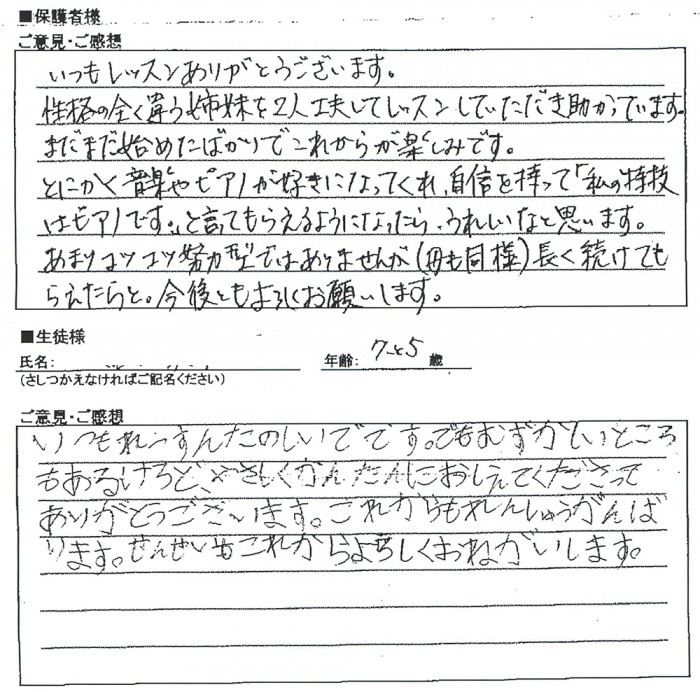 ■保護者様
ご意見・ご感想
いつもレッスンありがとうございます。
性格の全く違う姉妹を2人工夫してレッスンしていただき助かっています。
まだまだ始めたばかりでこれからが楽しみです。
とにかく音楽やピアノが好きになってくれ、自信を持って「私の特技
はピアノです。」と言ってもらえるようになったら、うれしいなと思います。
あまりコツコツ努力型ではありませんが(母も同様)長く続けても
らえたらと。今後ともよろしくお願いします。
■生徒様
氏名:
年齢: 7と5 歳
(さしつかえなければご記名ください)
ご意見・ご感想
いつもれっすんたのしいでです。でもむずかしいところ
もあるけろど、やさしくかんたんにおしえてくださって
ありがとうございます。これからもれんしゅうがんば
ります。せんせいもこれからよろしくおねがいします。